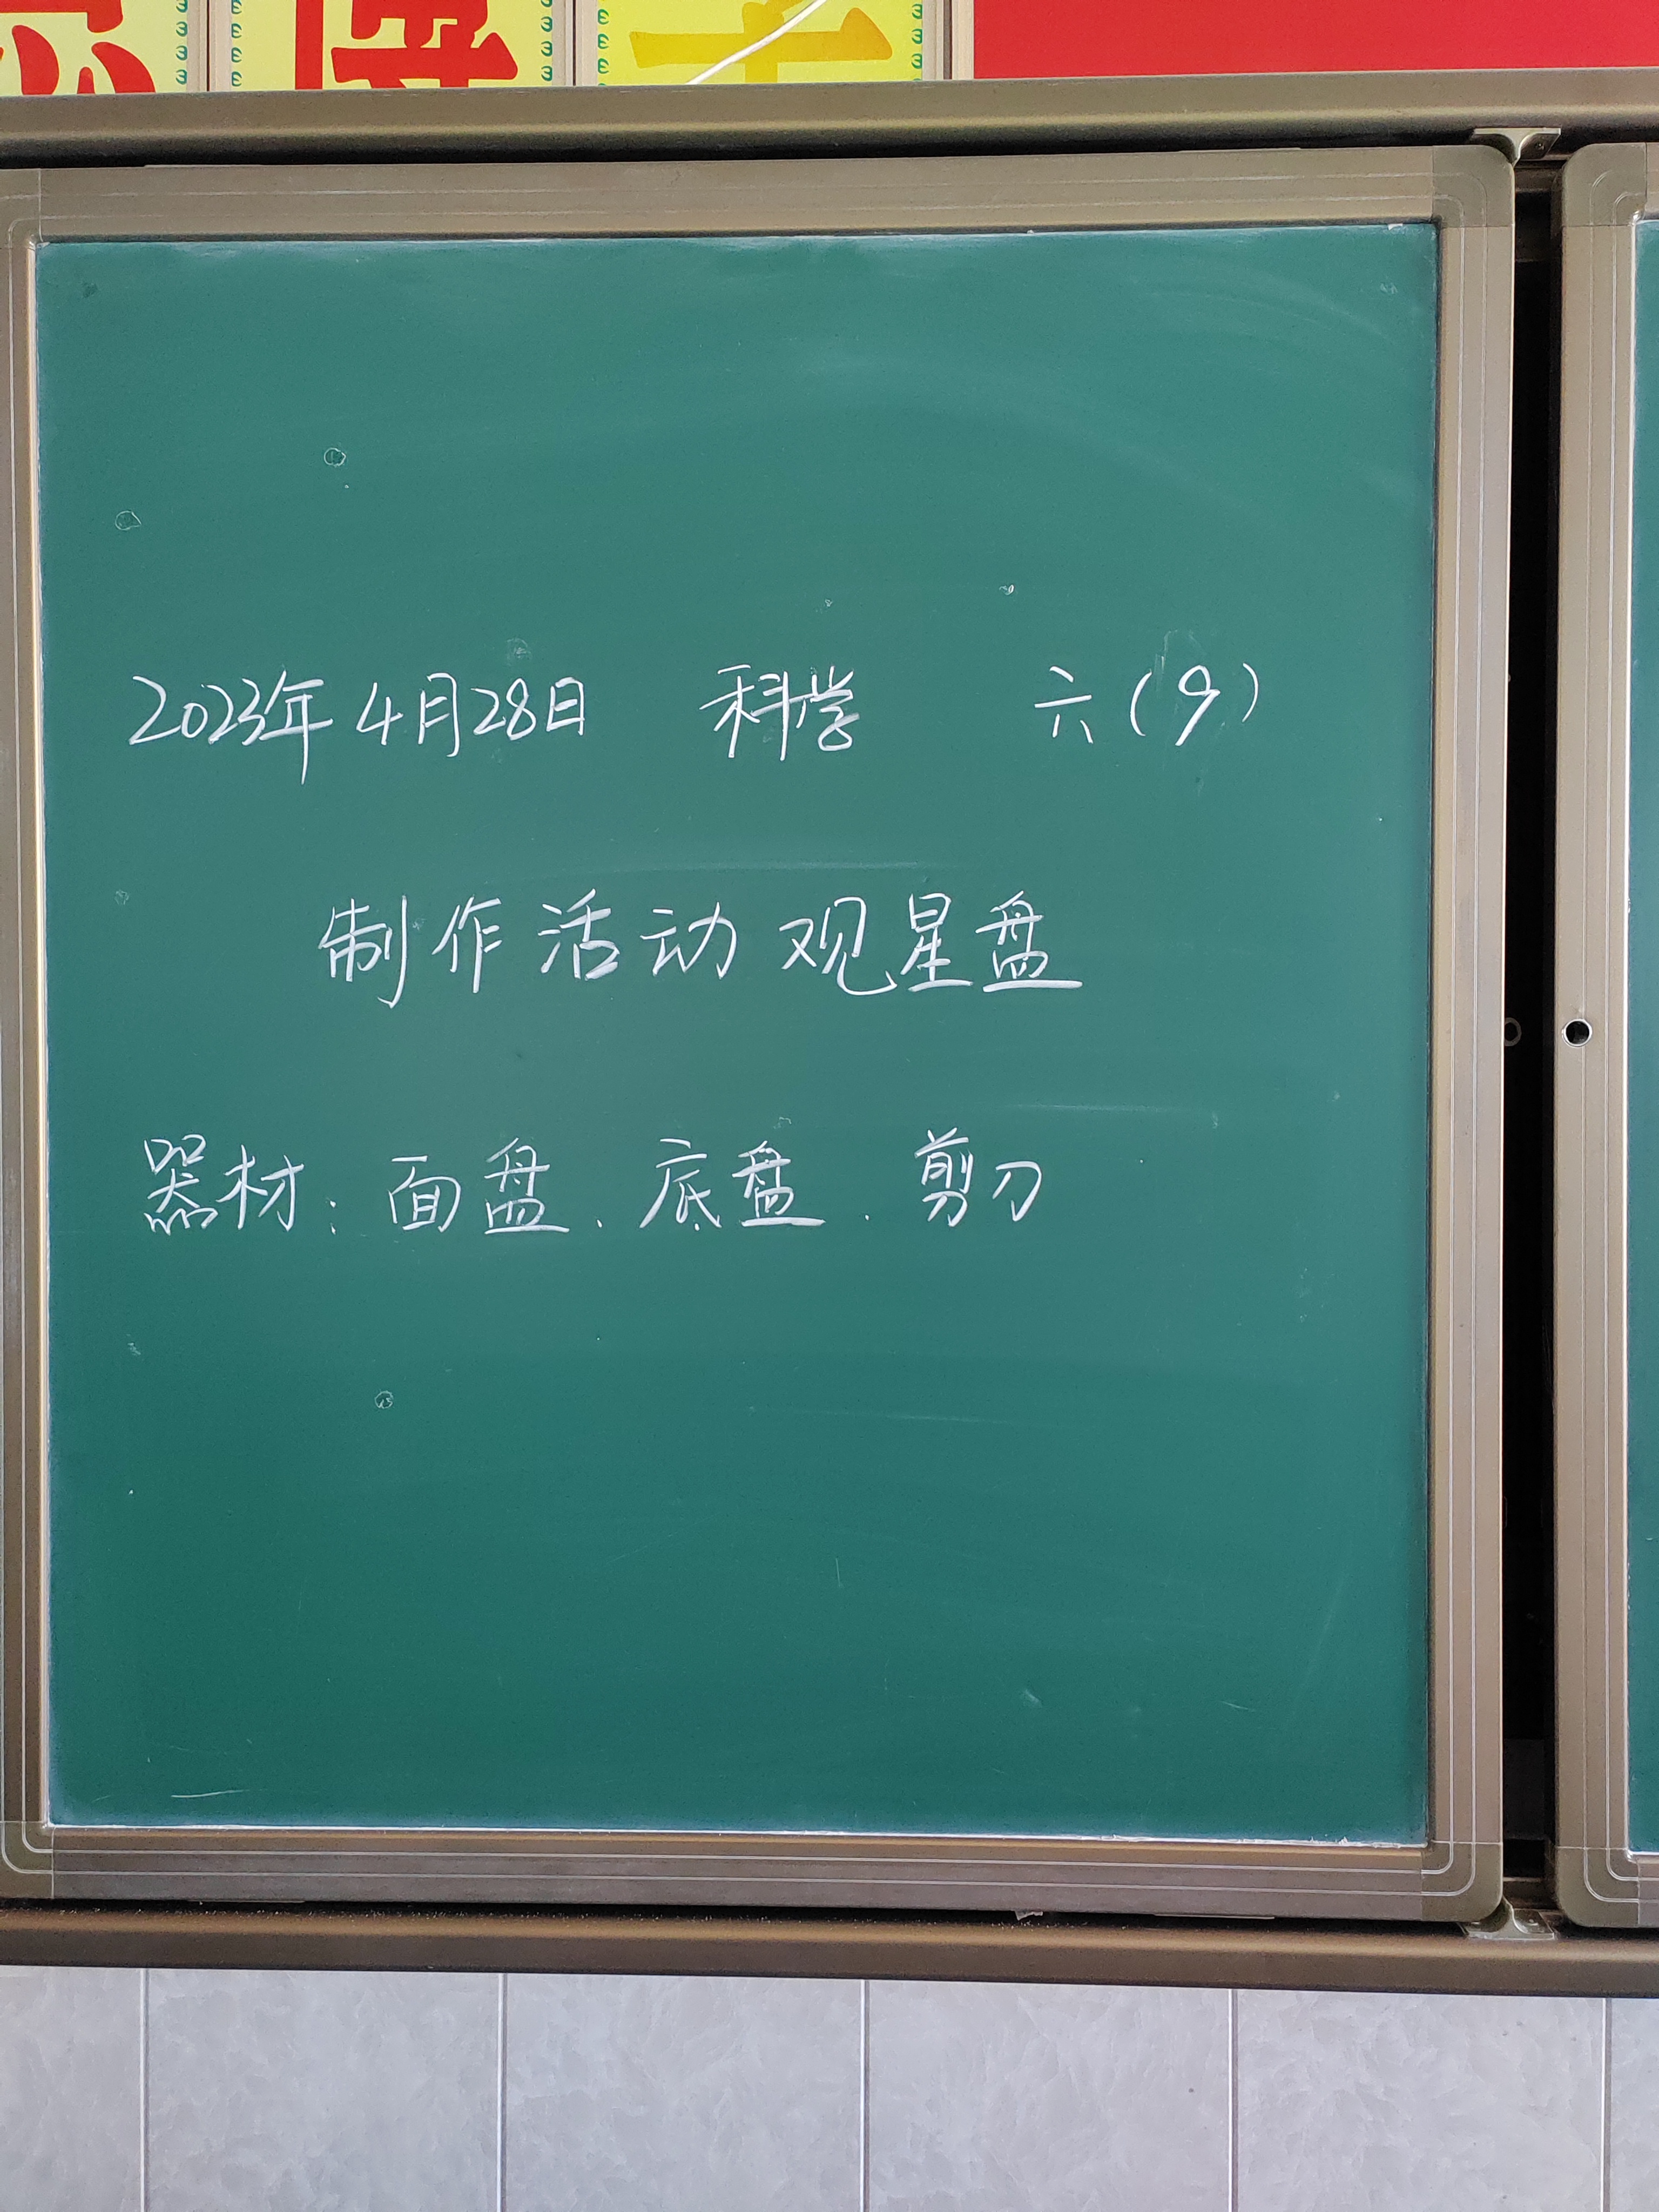 2023年4月28日 科学 六(9)
制作活动 观星盘
器材:面盘、底盘、剪刀